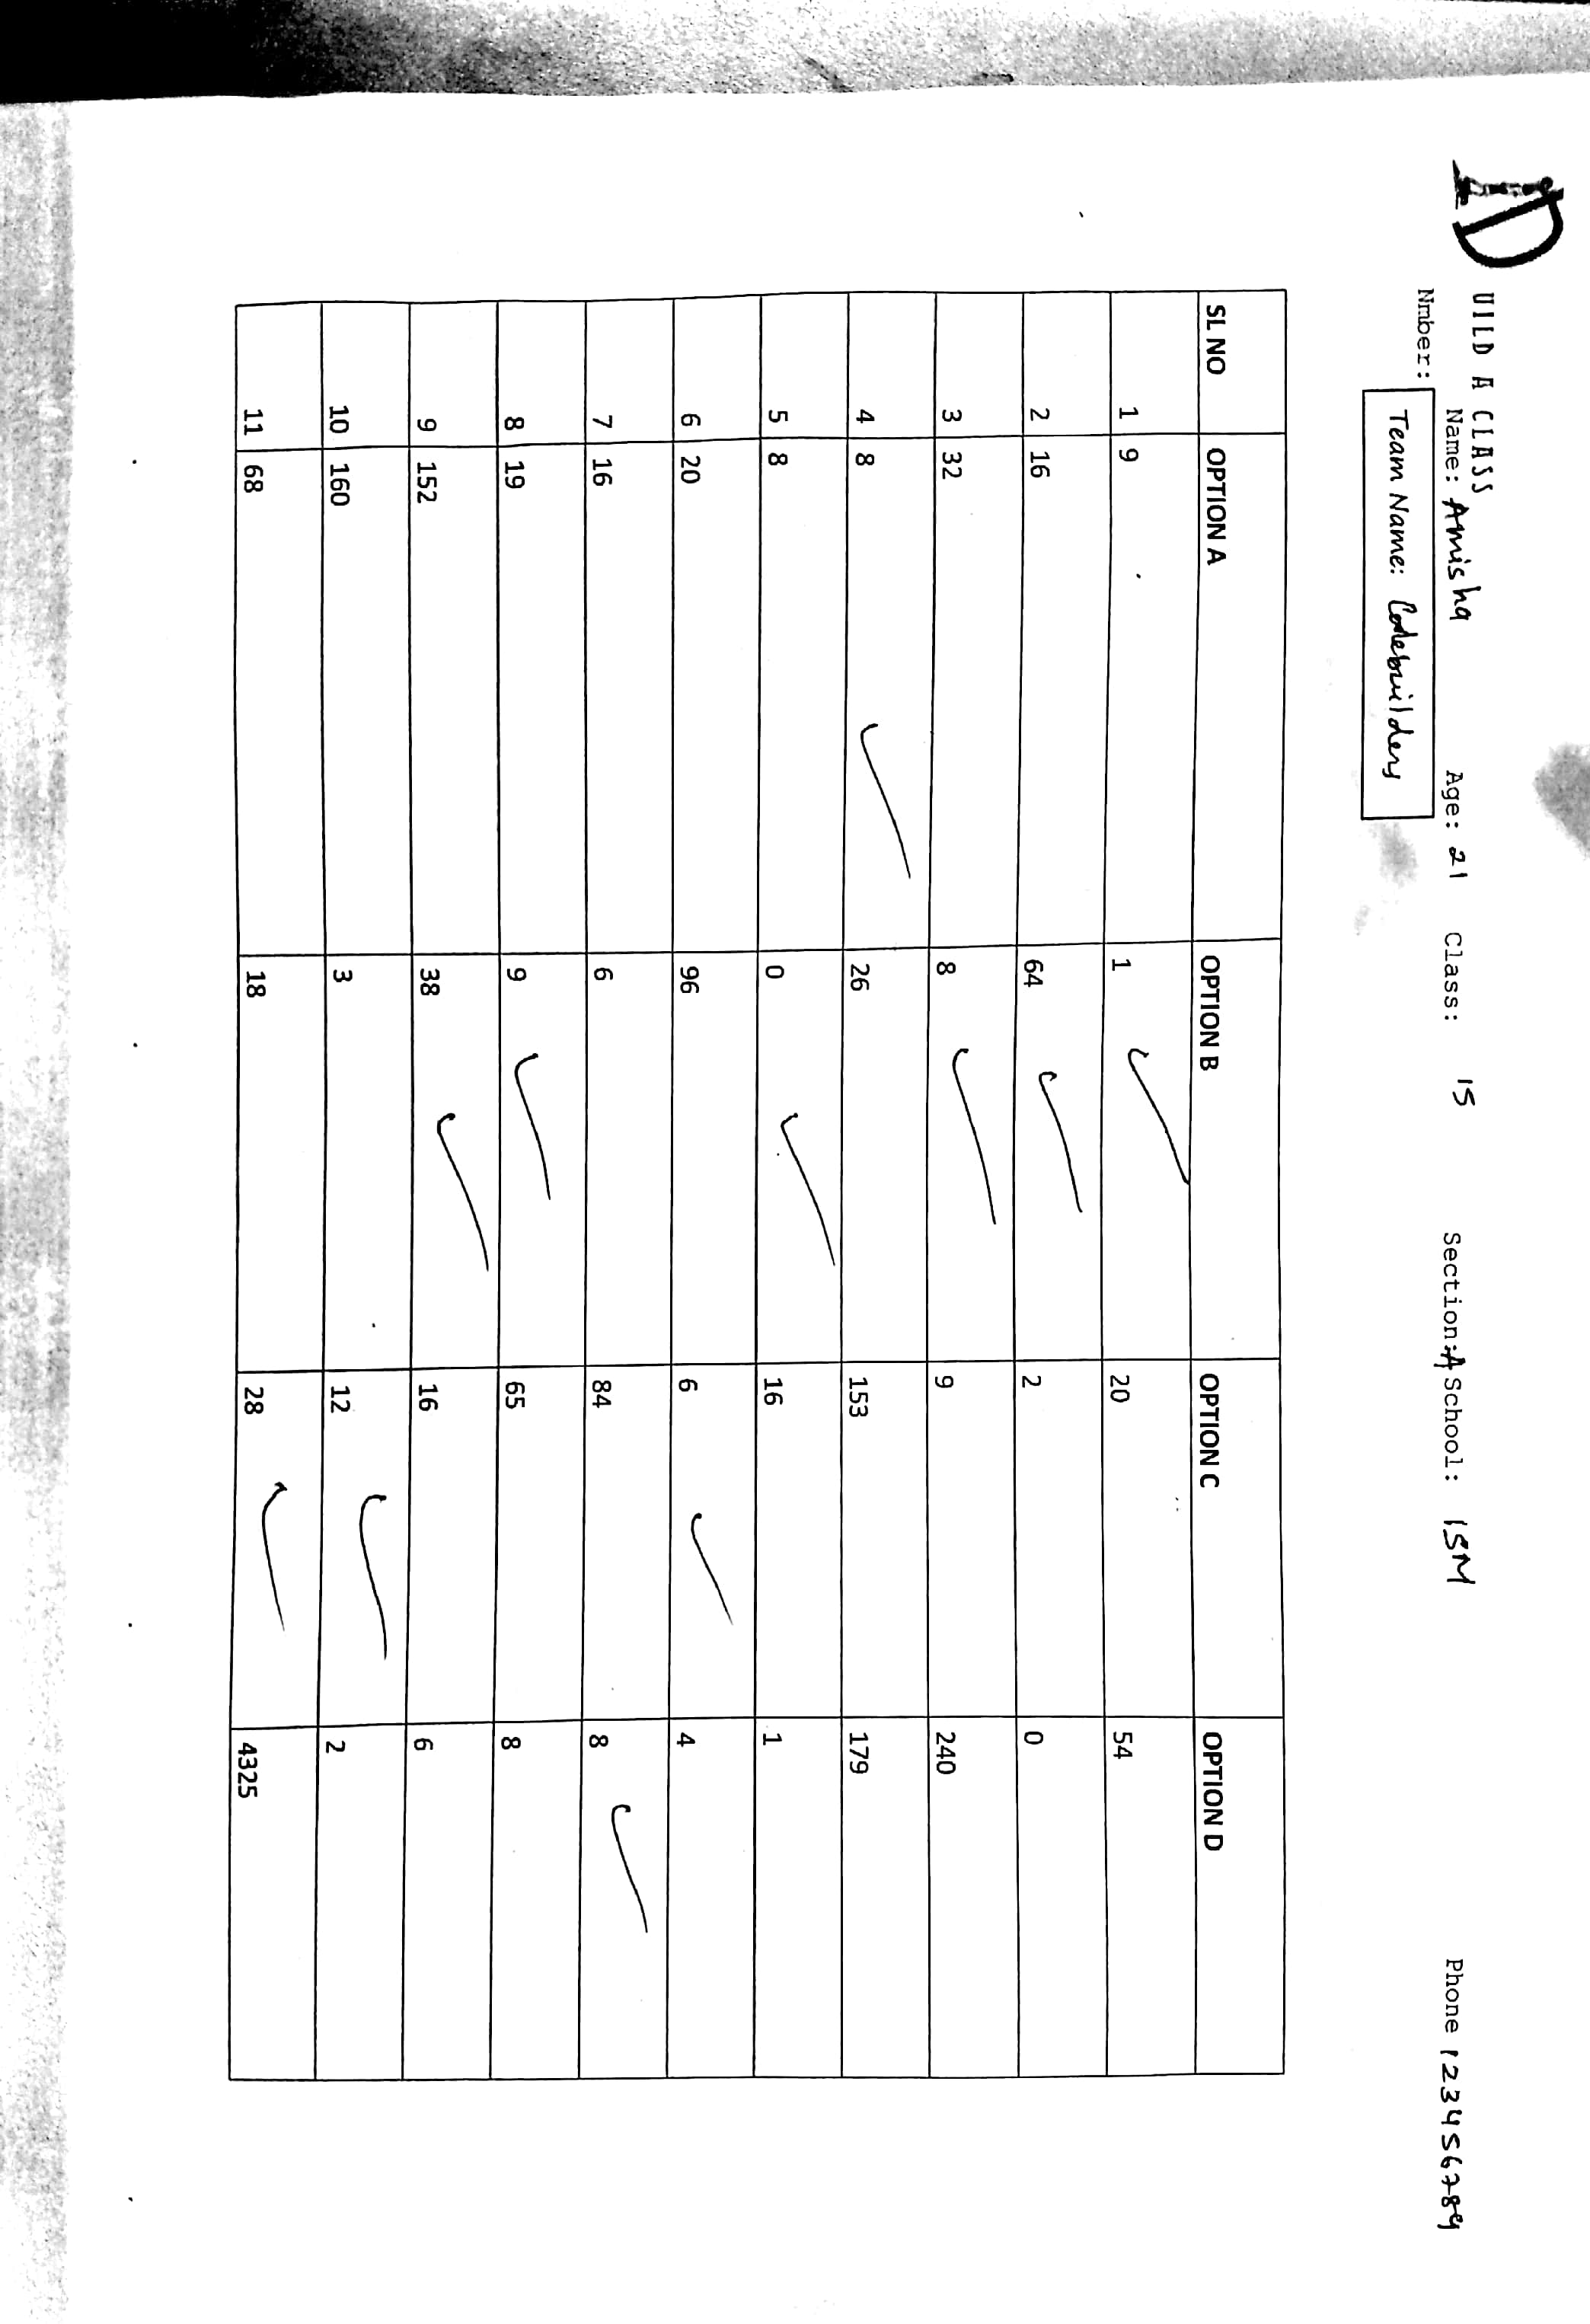 UILD A CLASS
Name: Amisha Age: 21 Class: 15 Section:A School: ISM Phone 123456789
Nmber:
Team Name: Codebuilders
SL NO OPTION A OPTION B OPTION C OPTION D
1 9 1 20 54
2 16 64 2 0
3 32 8 9 240
4 8 26 153 179
5 8 0 16 1
6 20 96 6 4
7 16 6 84 8
8 19 9 65 8
9 152 38 16 6
10 160 3 12 2
11 68 18 28 4325